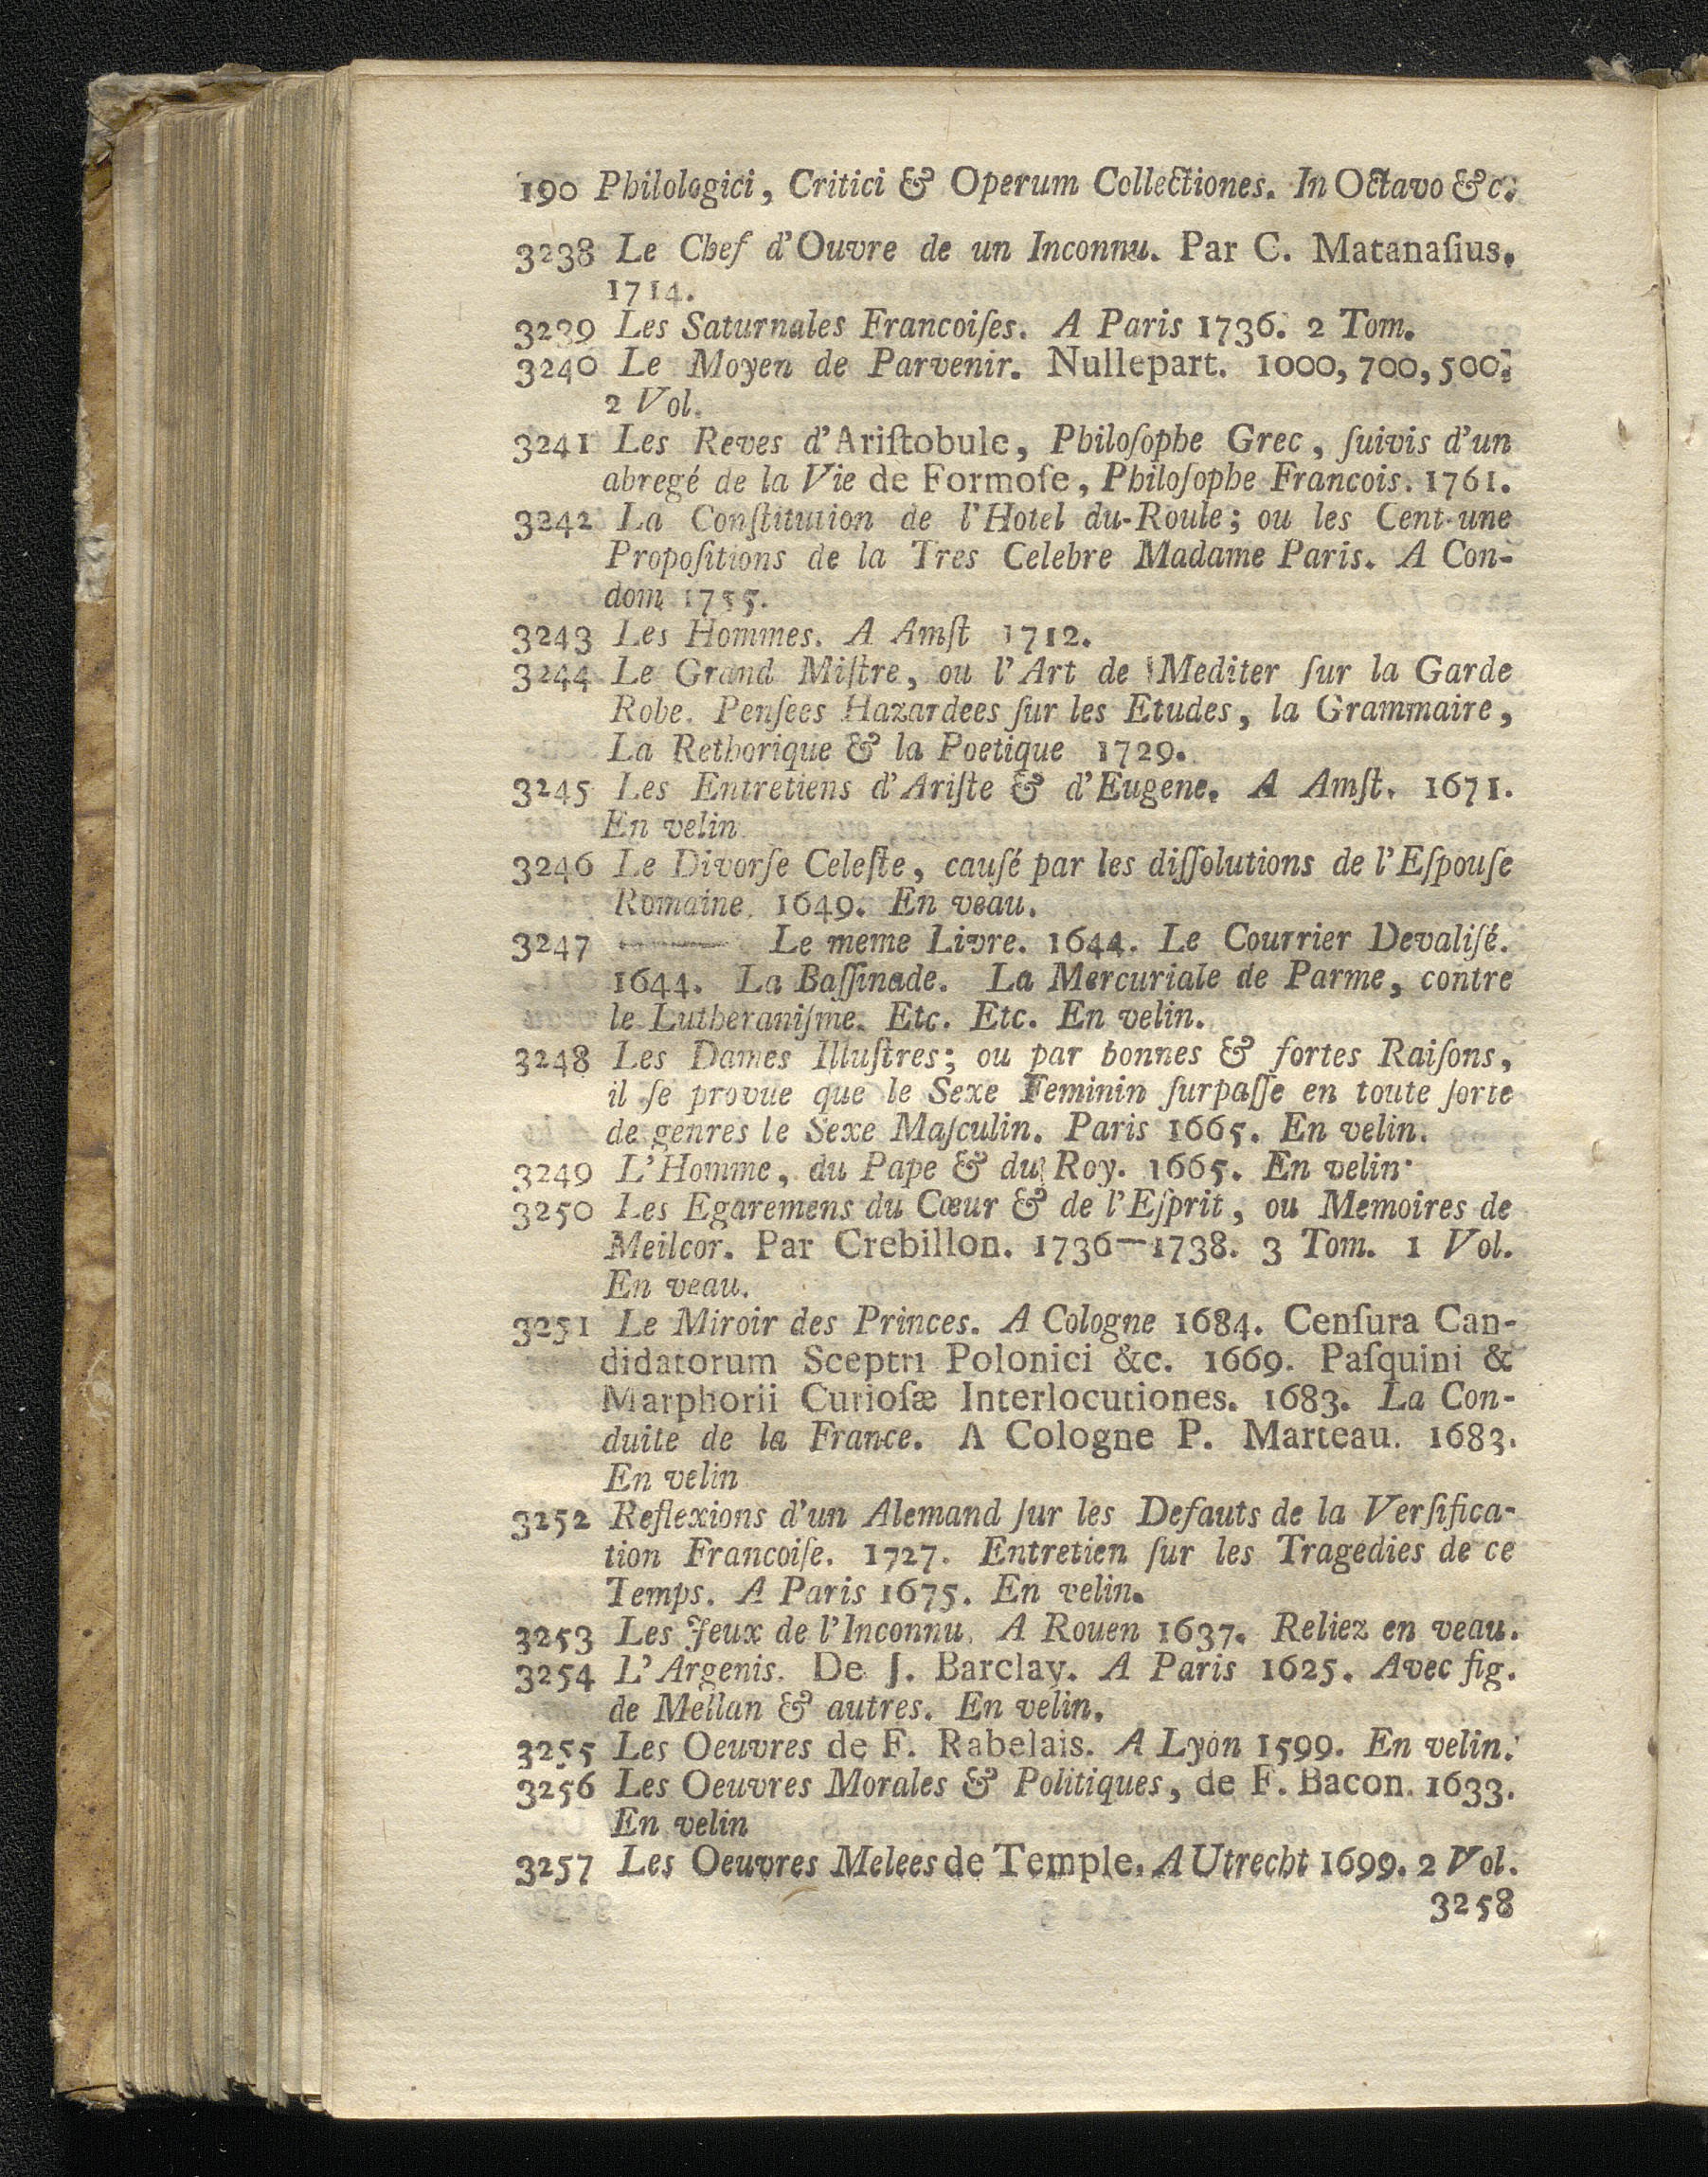 190 Philologici, Critici & Operum Collectiones. In Octavo &c.
3238 Le Chef d'Ouvre de un Inconnu. Par C. Matanaſius.
1714.
3239 Les Saturnales Francoiſes. A Paris 1736. 2 Tom.
3240 Le Moyen de Parvenir. Nullepart. 1000, 700, 500.
2 Vol.
3241 Les Reves d'Ariſtobule, Philoſophe Grec, ſuivis d'un
abregé de la Vie de Formoſe, Philoſophe Francois. 1761.
3242 La Conſtitution de l'Hotel du-Roule; ou les Cent-une
Propoſitions de la Tres Celebre Madame Paris. A Con-
dom 1755.
3243 Les Hommes. A Amſt 1712.
3244 Le Grand Miſtre, ou l'Art de Mediter ſur la Garde
Robe. Penſees Hazardees ſur les Etudes, la Grammaire,
La Rethorique & la Poetique 1729.
3245 Les Entretiens d'Ariſte & d'Eugene. A Amſt. 1671.
En velin
3246 Le Divorſe Celeſte, cauſé par les diſſolutions de l'Eſpouſe
Romaine. 1649. En veau.
3247 —— Le meme Livre. 1644. Le Courrier Devaliſé.
1644. La Baſſinade. La Mercuriale de Parme, contre
le Lutheraniſme. Etc. Etc. En velin.
3248 Les Dames Illuſtres; ou par bonnes & fortes Raiſons,
il ſe provue que le Sexe Feminin ſurpaſſe en toute ſorte
de genres le Sexe Maſculin. Paris 1665. En velin.
3249 L'Homme, du Pape & du Roy. 1665. En velin·
3250 Les Egaremens du Cœur & de l'Eſprit, ou Memoires de
Meilcor. Par Crebillon. 1736—1738. 3 Tom. 1 Vol.
En veau.
3251 Le Miroir des Princes. A Cologne 1684. Cenſura Can-
didatorum Sceptri Polonici &c. 1669. Paſquini &
Marphorii Curioſæ Interlocutiones. 1683. La Con-
duite de la France. A Cologne P. Marteau. 1683.
En velin
3252 Reflexions d'un Alemand ſur les Defauts de la Verſifica-
tion Francoiſe. 1727. Entretien ſur les Tragedies de ce
Temps. A Paris 1675. En velin.
3253 Les Jeux de l'Inconnu. A Rouen 1637. Reliez en veau.
3254 L'Argenis. De J. Barclay. A Paris 1625. Avec fig.
de Mellan & autres. En velin.
3255 Les Oeuvres de F. Rabelais. A Lyon 1599. En velin.
3256 Les Oeuvres Morales & Politiques, de F. Bacon. 1633.
En velin
3257 Les Oeuvres Melees de Temple. A Utrecht 1699. 2 Vol.
3258